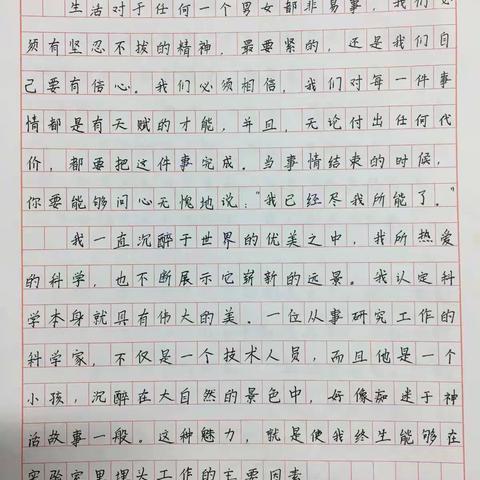 生活对于任何一个男女都非易事，我们必
须有坚忍不拔的精神，最要紧的，还是我们自
己要有信心。我们必须相信，我们对每一件事
情都是有天赋的才能，并且，无论付出任何代
价，都要把这件事完成。当事情结束的时候，
你要能够问心无愧地说："我已经尽我所能了。"
我一直沉醉于世界的优美之中，我所热爱
的科学，也不断展示它崭新的远景。我认定科
学本身就具有伟大的美。一位从事研究工作的
科学家，不仅是一个技术人员，而且他是一个
小孩，沉醉在大自然的景色中，好像痴迷于神
话故事一般。这种魅力，就是使我终生能够在
实验室里埋头工作的主要因素